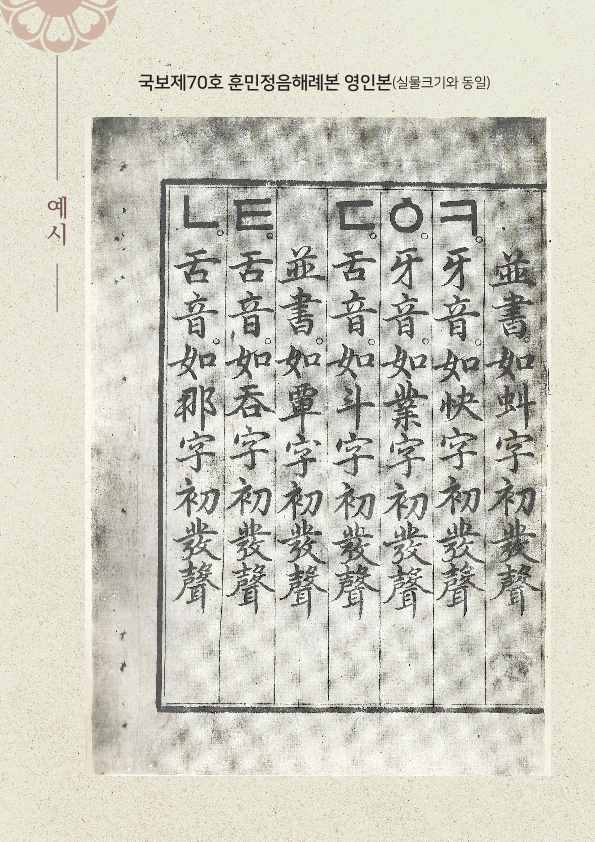 국보제70호 훈민정음해례본 영인본(실물크기와 동일)
예시
並書。如虯字初發聲
ㅋ。牙音。如快字初發聲
ㆁ。牙音。如業字初發聲
ㄷ。舌音。如斗字初發聲
並書。如覃字初發聲
ㅌ。舌音。如呑字初發聲
ㄴ。舌音。如那字初發聲